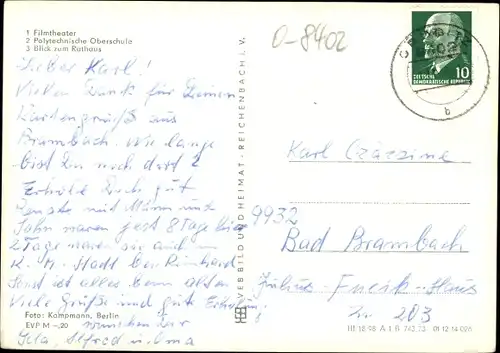 1 Filmtheater
2 Polytechnische Oberschule
3 Blick zum Rathaus
O-8402
DEUTSCHE
DEMOKRATISCHE REPUBLIK
10
b
Lieber Karl!
Vielen Dank für Deinen
Kartengruß aus
Brambach. Wie lange
bist Du noch dort?
Erhole Dich gut
mit Mann und
Sohn waren jetzt 8 Tage hier
2 Tage waren sie auch in
K. M. Stadt bei Reinhard
Sonst ist alles beim alten
Viele Grüße und gute Erholung
wünschen Dir
Alfred u. Oma
Foto: Kampmann, Berlin
EVP M -,20
VEB BILD UND HEIMAT · REICHENBACH i. V.
Karl
9932
Bad Brambach
Julius-Fucik-Haus
Zi. 203
III/18/48 A 1 B 01 12 14 028